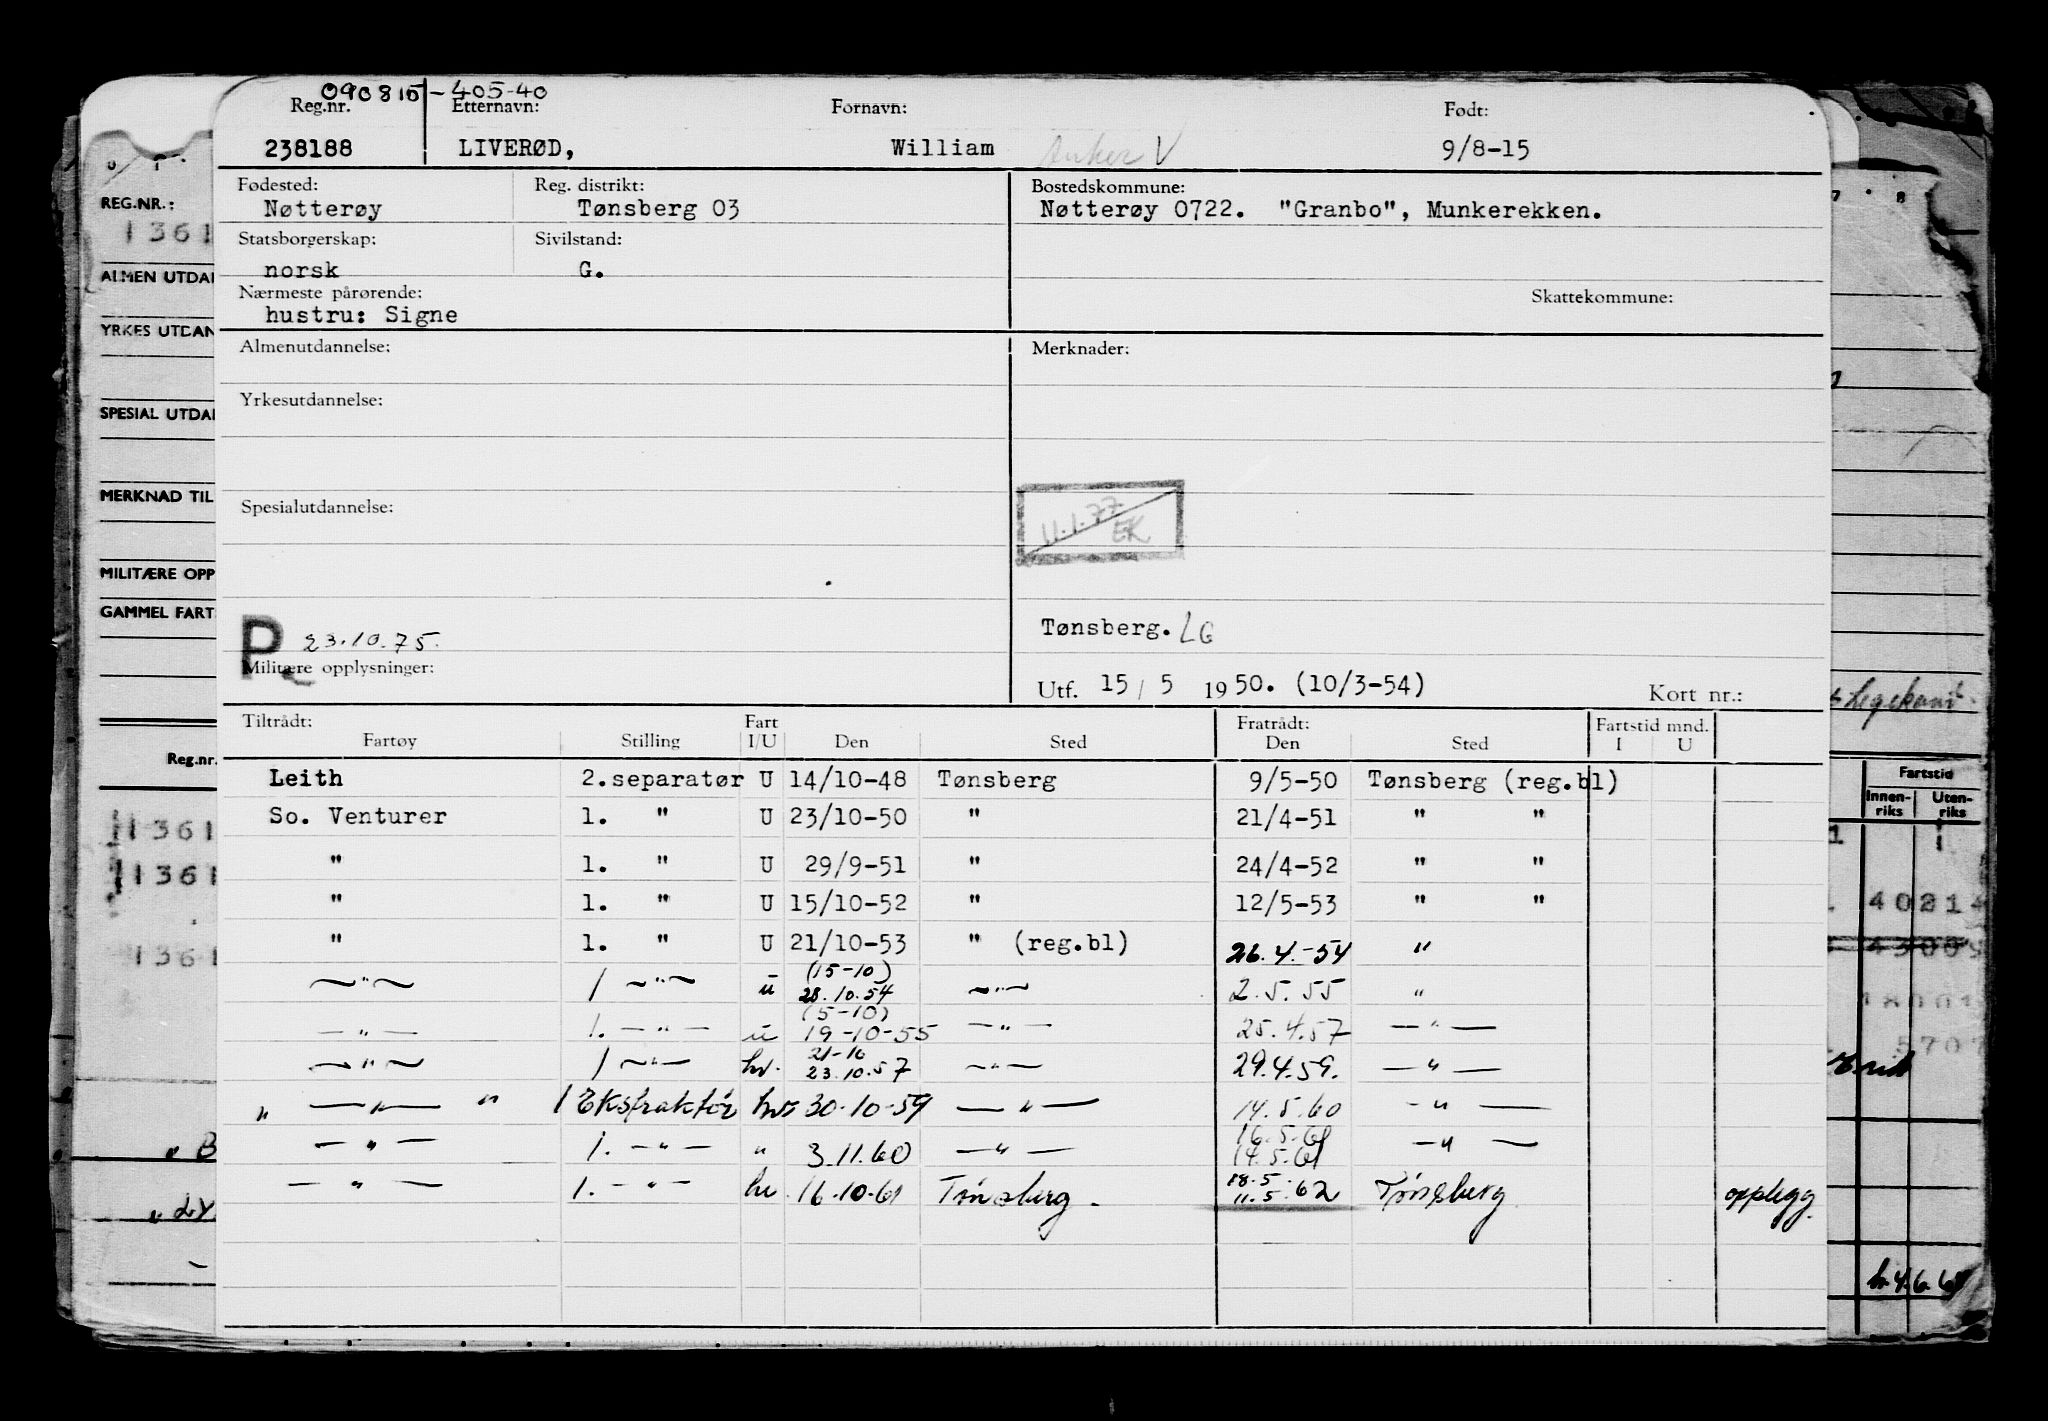 090815-405-40
Reg.nr. Etternavn: Fornavn: Født:
238188 LIVERØD, William Anker V 9/8-15
Fødested: Reg. distrikt: Bostedskommune:
Nøtterøy Tønsberg 03 Nøtterøy 0722. "Granbo", Munkerekken.
Statsborgerskap: Sivilstand:
norsk G.
Nærmeste pårørende: Skattekommune:
hustru: Signe
Almenutdannelse: Merknader:
Yrkesutdannelse:
Spesialutdannelse:
11.1.77 EK
P 23.10.75. Tønsberg. LG
Militære opplysninger: Utf. 15/5 1950. (10/3-54) Kort nr.:
Tiltrådt: Fart Fratrådt: Fartstid mnd.
Fartøy Stilling I/U Den Sted Den Sted I U
Leith 2.separatør U 14/10-48 Tønsberg 9/5-50 Tønsberg (reg.bl)
So. Venturer 1. " U 23/10-50 " 21/4-51 " "
" 1. " U 29/9-51 " 24/4-52 " "
" 1. " U 15/10-52 " 12/5-53 " "
" 1. " U 21/10-53 " (reg.bl) 26.4.-54 "
(15-10)
—"— 1 —"— u 28.10.54 —"— 2.5.55 "
(5-10)
—"— 1. —"— u 19-10-55 —"— 25.4.57 —"—
21-10
—"— 1 —"— hv. 23.10.57 —"— 29.4.59. —"—
" —"— " 1 Ekstraktør hv 30-10-59 —"— 14.5.60 —"—
16.5.61
—"— 1. —"— " 3.11.60 —"— 14.5.61 —"—
18.5
—"— 1. —"— hv 16.10.61 Tønsberg. 11.5.62 Tønsberg opplegg.
REG.NR.:
1361
ALMEN UTDAN
YRKES UTDAN
SPESIAL UTDAN
MERKNAD TIL
MILITÆRE OPP
GAMMEL FART
Reg.nr.
1361
1361
1361
7 8
Fartstid
Innenriks Utenriks
40214
5707